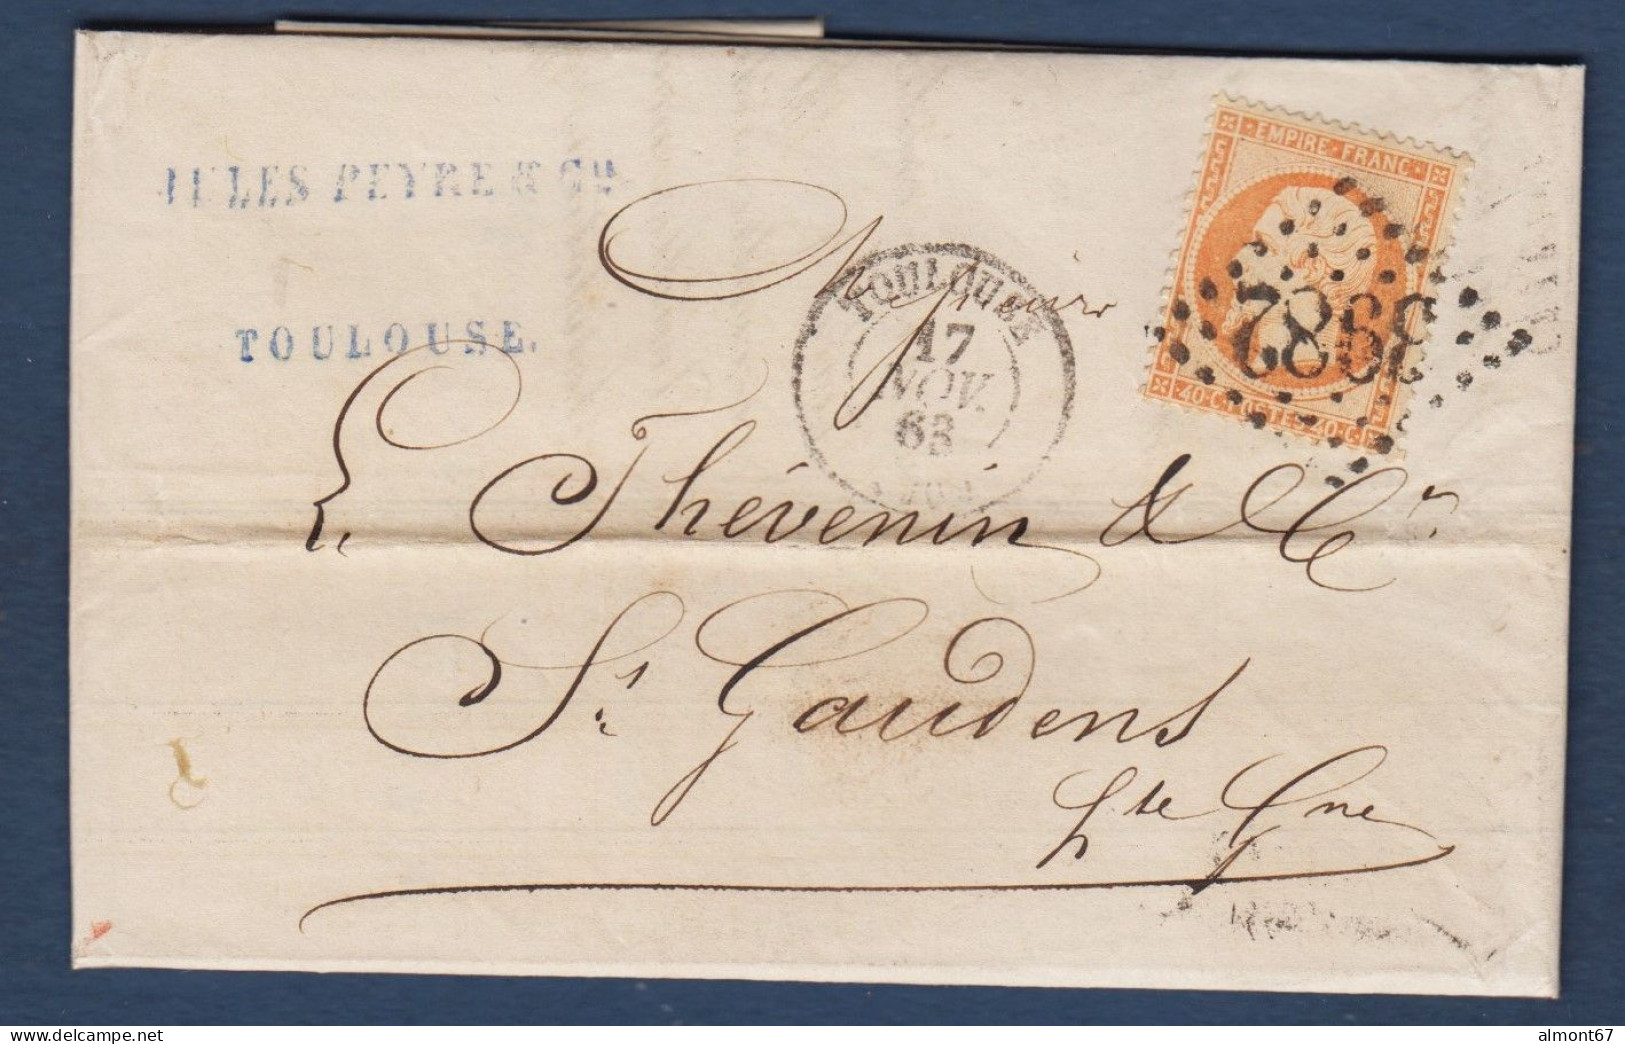 JULES PEYRE & Cie
TOULOUSE.
Messieurs
TOULOUSE
17
NOV.
63
EMPIRE · FRANC ·
3982
· 40 · C · POSTES · 40 · C ·
E. Thévenin & Cie
St. Gaudens
Hte Gne
almont67